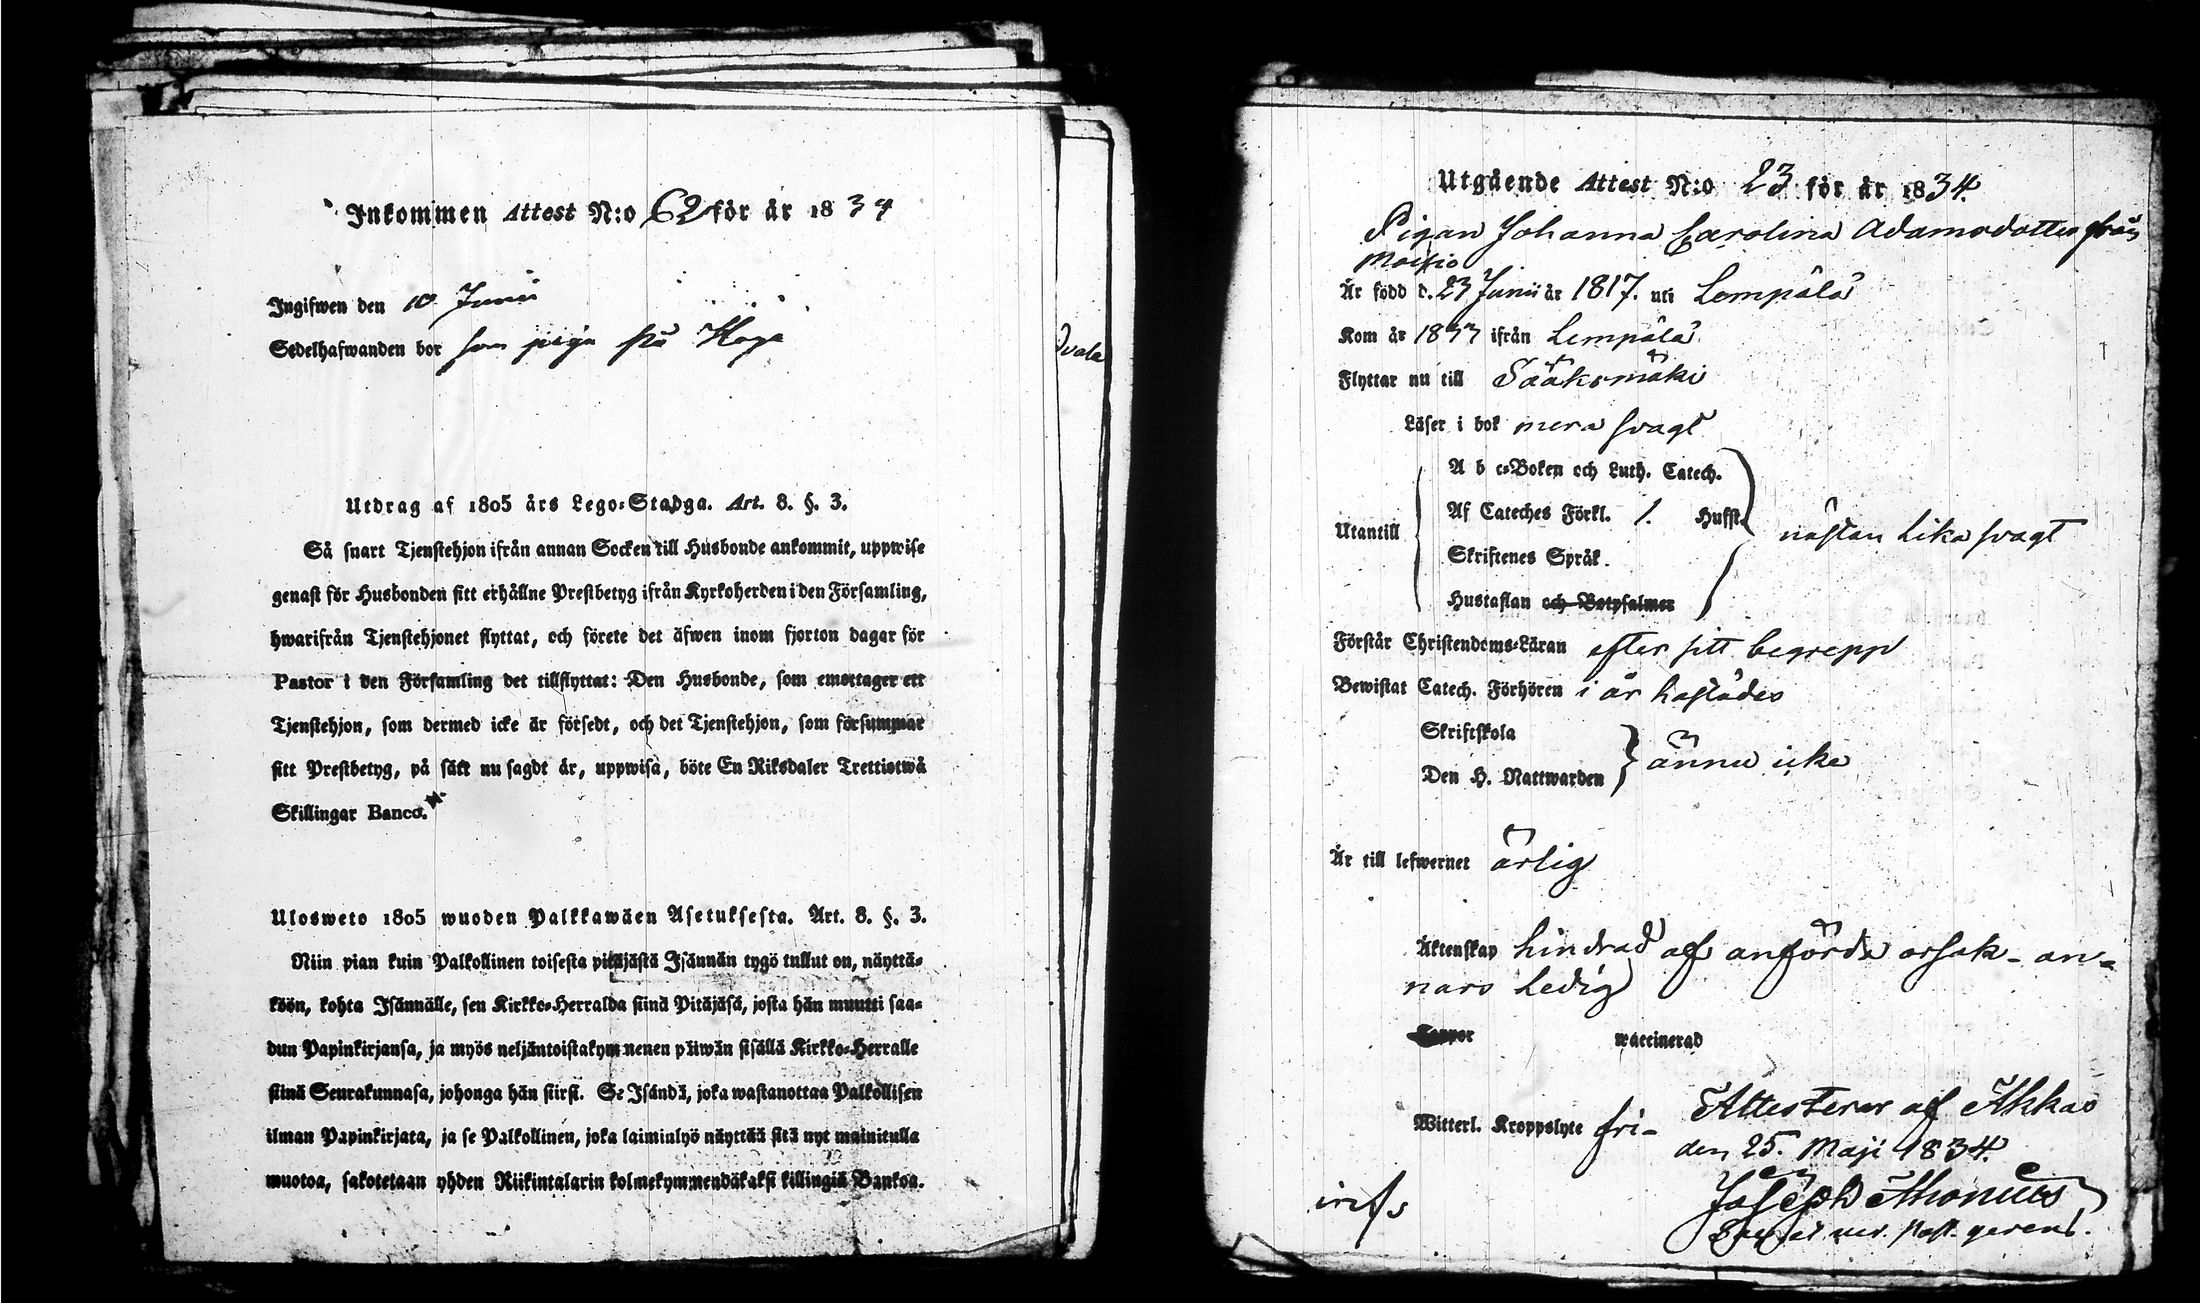 Inkommen Attest N:o 62 för år 1834
Ingifwen den 10 Junii
Sedelhafwanden bor som piga på Haga
Utdrag af 1805 års Lego-Stadga. Art. 8. §. 3.
Så snart Tjenstehjon ifrån annan Socken till Husbonde ankommit, uppwise
genast för Husbonden sitt erhållne Prestbetyg ifrån Kyrkoherden i den Församling,
hwarifrån Tjenstehjonet flyttat, och förete det äfwen inom fjorton dagar för
Pastor i den Församling det tillflyttat: Den Husbonde, som emottager ett
Tjenstehjon, som dermed icke är försedt, och det Tjenstehjon, som försummar
sitt Prestbetyg, på sätt nu sagdt är, uppwisa, böte En Riksdaler Trettiotwå
Skillingar Banco.
Ulosweto 1805 wuoden Palkkawäen Asetuksesta. Art. 8. §. 3.
Niin pian kuin Palkollinen toisesta pitäjästä Isännän tygö tullut on, näyttä-
köön, kohta Isännälle, sen Kirkko-Herralda siinä Pitäjäsä, josta hän muutti saa-
dun Papinkirjansa, ja myös neljäntoistakymmenen päiwän sisällä Kirkko-Herralle
siinä Seurakunnasa, johonga hän siirsi. Se Isändä, joka wastanottaa Palkollisen
ilman Papinkirjata, ja se Palkollinen, joka laiminlyö näyttää sitä nyt mainitulla
muotoa, sakotetaan yhden Riikintalarin kolmekymmendäkaksi killingiä Bankoa.
Utgående Attest N:o 23 för år 1834.
Pigan Johanna Carolina Adamsdotter från
Moisio
Är född d. 23 Junii år 1817. uti Lempälä
Kom år 1833 ifrån Lempälä
Flyttar nu till Sääksmäki
Läser i bok mera svagt
A b c-Boken och Luth. Catech.
Af Cateches Förkl. 1. Hufst.
Utantill nästan lika svagt
Skriftenes Språk.
Hustaflan och Botpsalmer
Förstår Christendoms-Läran efter sitt begrepp
Bewistat Catech. Förhören i år hastådes
Skriftskola
ännu icke
Den H. Nattwarden
Är till lefwernet ärlig
Äktenskap hindrad af anförde orsak - an-
nars ledig
Koppor waccinerad
Witterl. Kroppslyte fri-
Attesterar af Akkas
den 25. Maji 1834.
Joseph